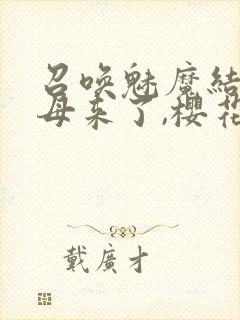 召唤魅魔结
母来了,樱花
戴廣才